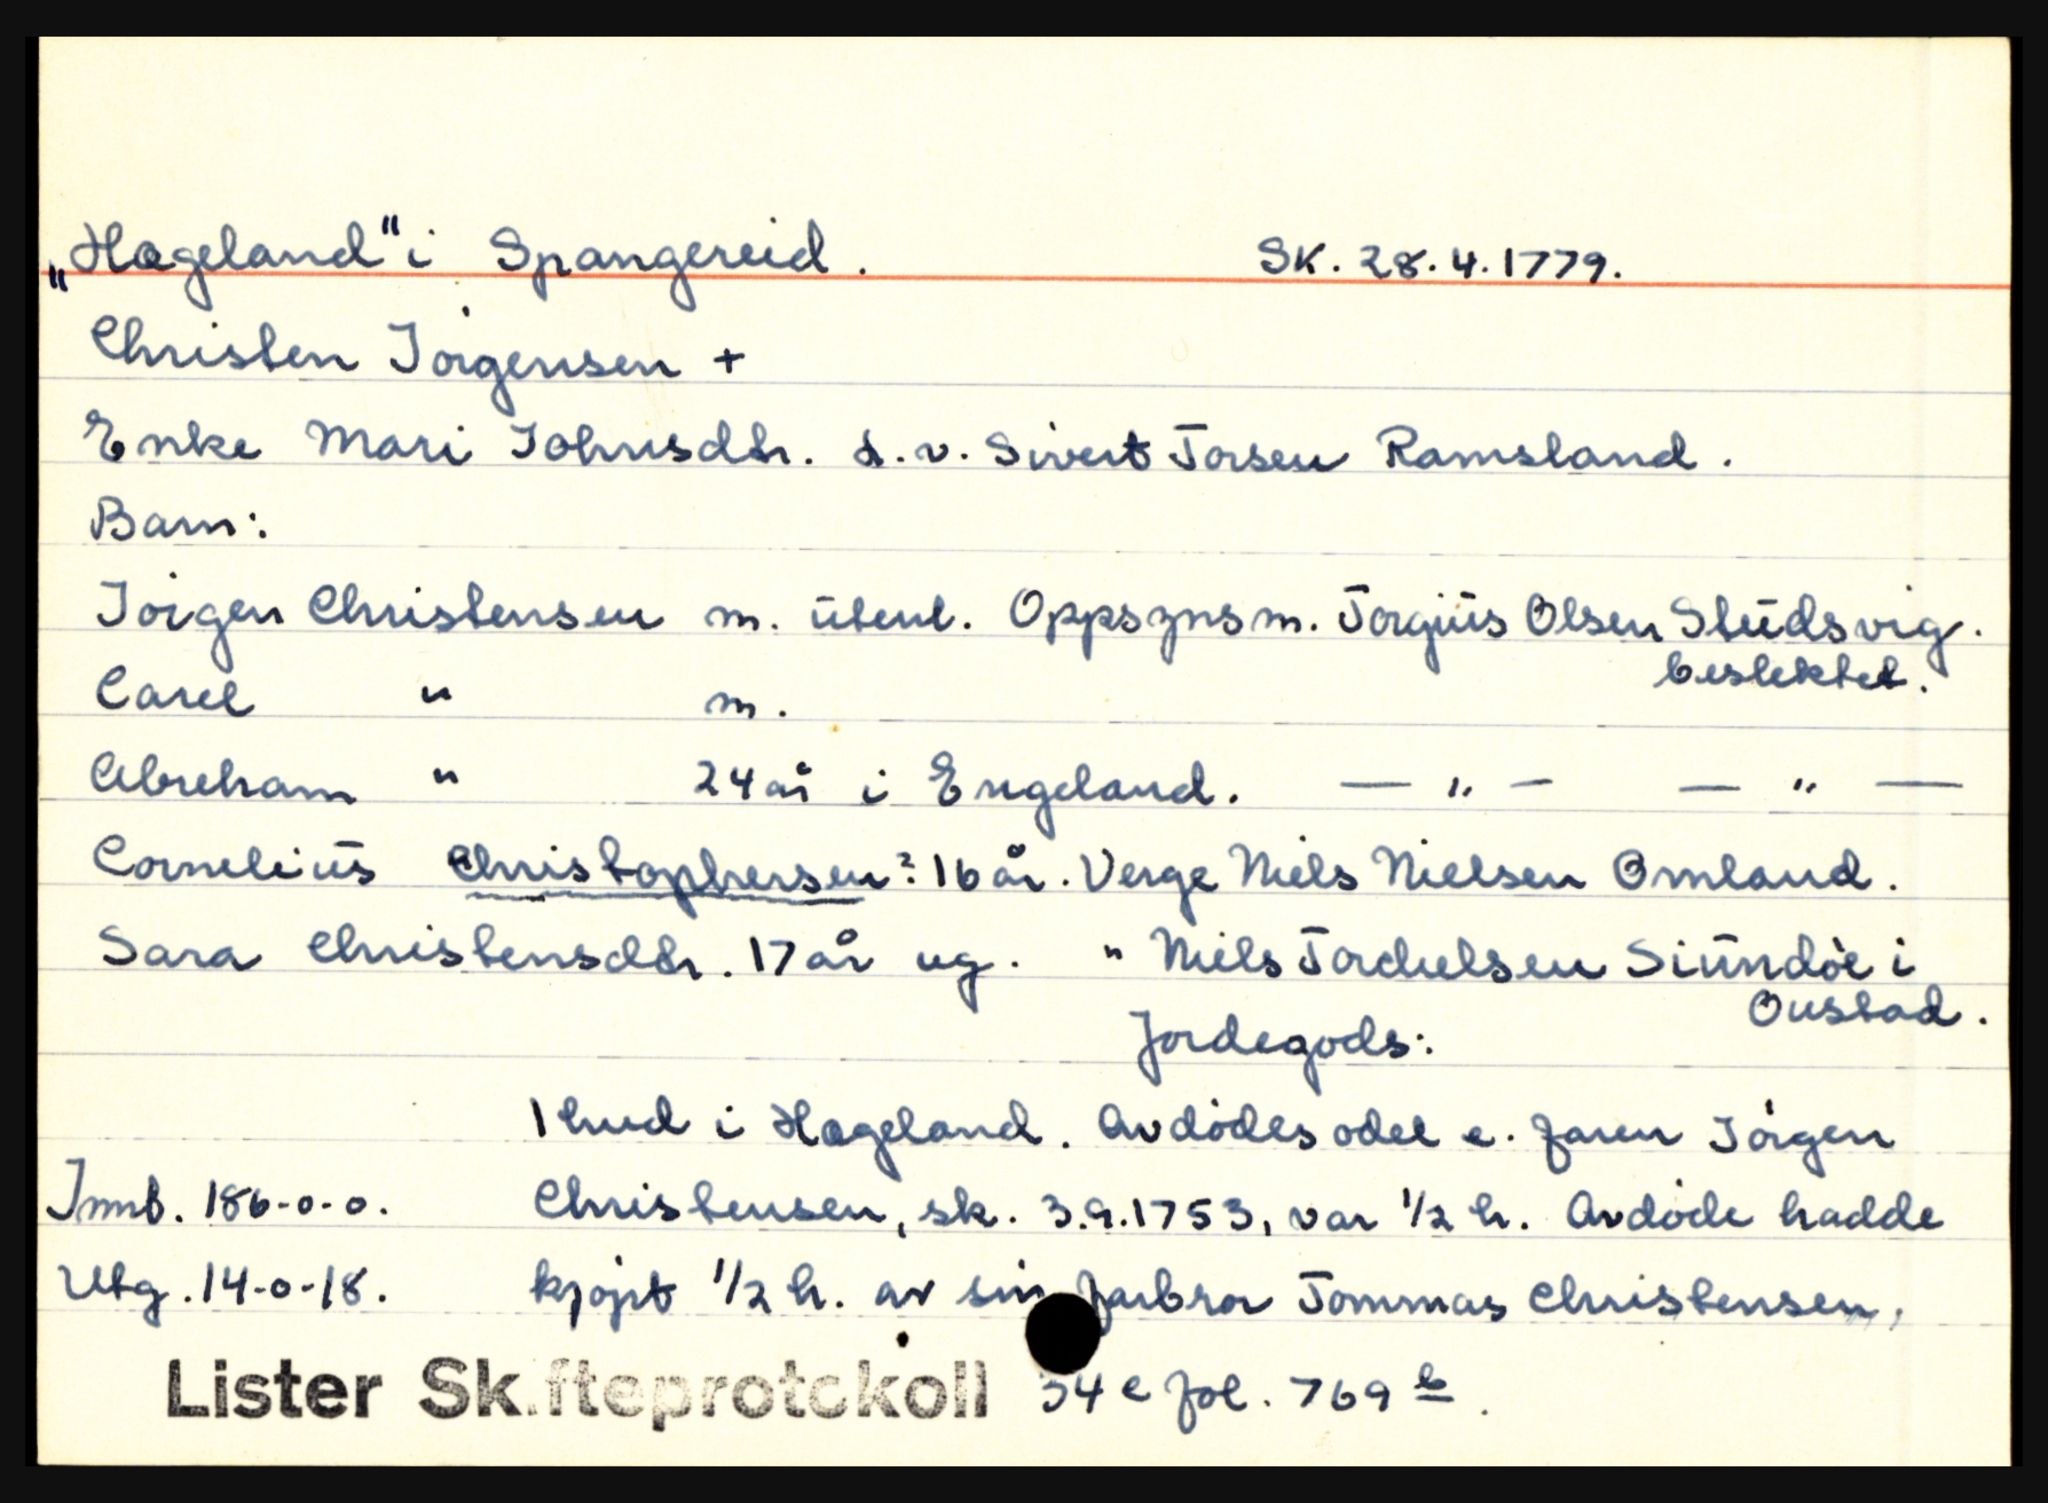 „Hageland" i Spangereid. SK. 28.4.1779.
Christen Jörgensen +
Enke Mari Johnsdtr. d.v. Sivert Torsen Ramsland.
Barn:
Jörgen Christensen m. ütenl. Oppsznsm. Torgiüs Olsen Stüdsvig.
beslektet.
Carel " m.
Abreham " 24 år i Engeland. — " — — " —
Corneliüs Christophersen? 16 år. Verge Niels Nielsen Omland.
Sara Christensdtr. 17 år ug. " Niels Torchelsen Siündöe i
Oustad.
Jordegods:
1 hud i Hageland. Avdödes odel e. faren Jörgen
Innb. 186-0-0. Christensen, sk. 3.9.1753, var 1/2 h. Avdöde hadde
Utg. 14-0-18. kjöpt 1/2 h. av sin farbror Tommas Christensen,
Lister Sk.fteprotckoll 34 e fol. 769 b.